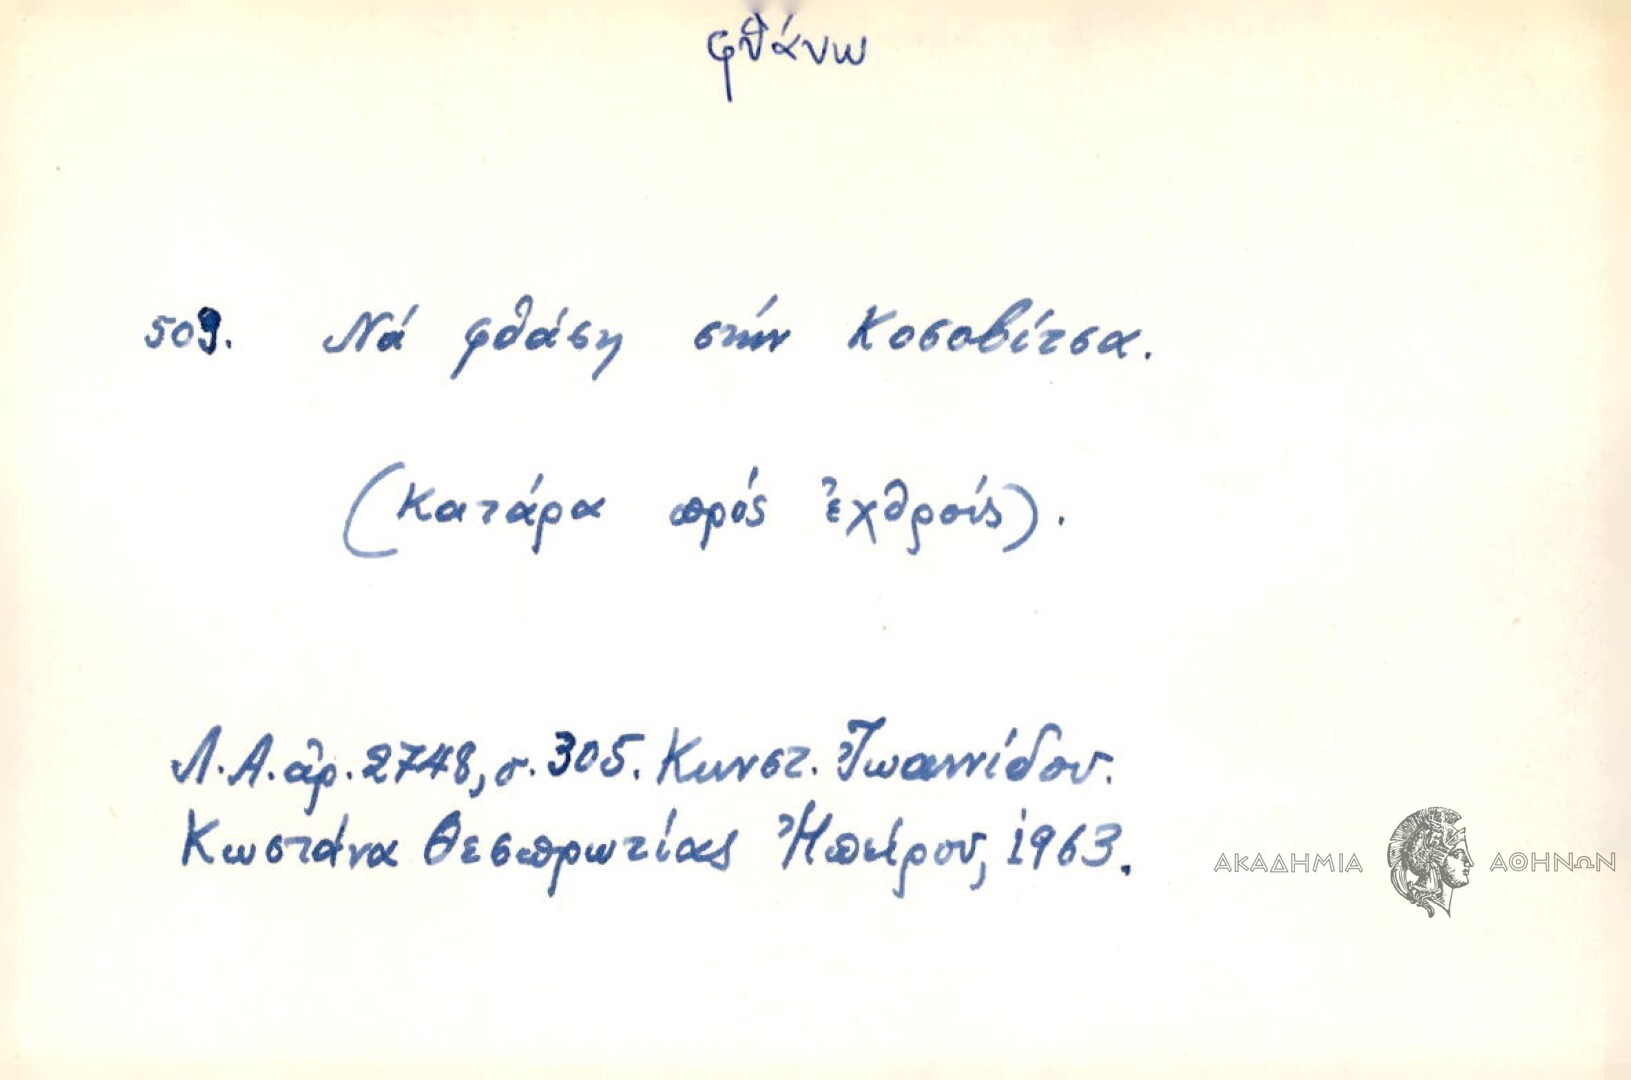 φθάνω
509. Νά φθάση στήν Κοσοβίτσα.
(κατάρα πρός ἐχθρούς).
Λ.Α. ἀρ. 2748, σ. 305. Κωνστ. Ἰωαννίδου.
Κωστάνα Θεσπρωτίας Ἠπείρου, 1963.
ΑΚΑΔΗΜΙΑ ΑΘΗΝΩΝ